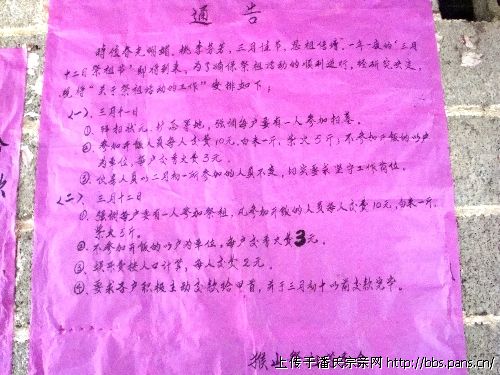 通告
时值春光明媚，桃李芬芳，三月佳节，思祖倍增。一年一度的"三月
十二日祭祖节"即将到来，为了确保祭祖活动的顺利进行，经研究决定，
现将"关于祭祖活动的工作"安排如下：
(一)、三月十一日
①、拜扫状元、等地，强调每户要有一人参加扫墓。
②、参加开饭人员每人交费10元，白米一斤，柴火5斤；不参加开饭的以户
为单位，每户交香火费3元。
③、伙房人员以二月初一所参加的人员不变，切实要求坚守工作岗位。
(二)、三月十二日
①、强调每户要有一人参加祭祖，凡参加开饭的人员每人交费10元，白米一斤，
柴火5斤。
②、不参加开饭的以户为单位，每户交香火费3元。
③、娱乐费按人口计算，每人交费2元。
④、要求各户积极主动交款给甲首，并于三月初十以前交款完毕。
........
猴山
上传于潘氏宗亲网 http://bbs.pans.cn/